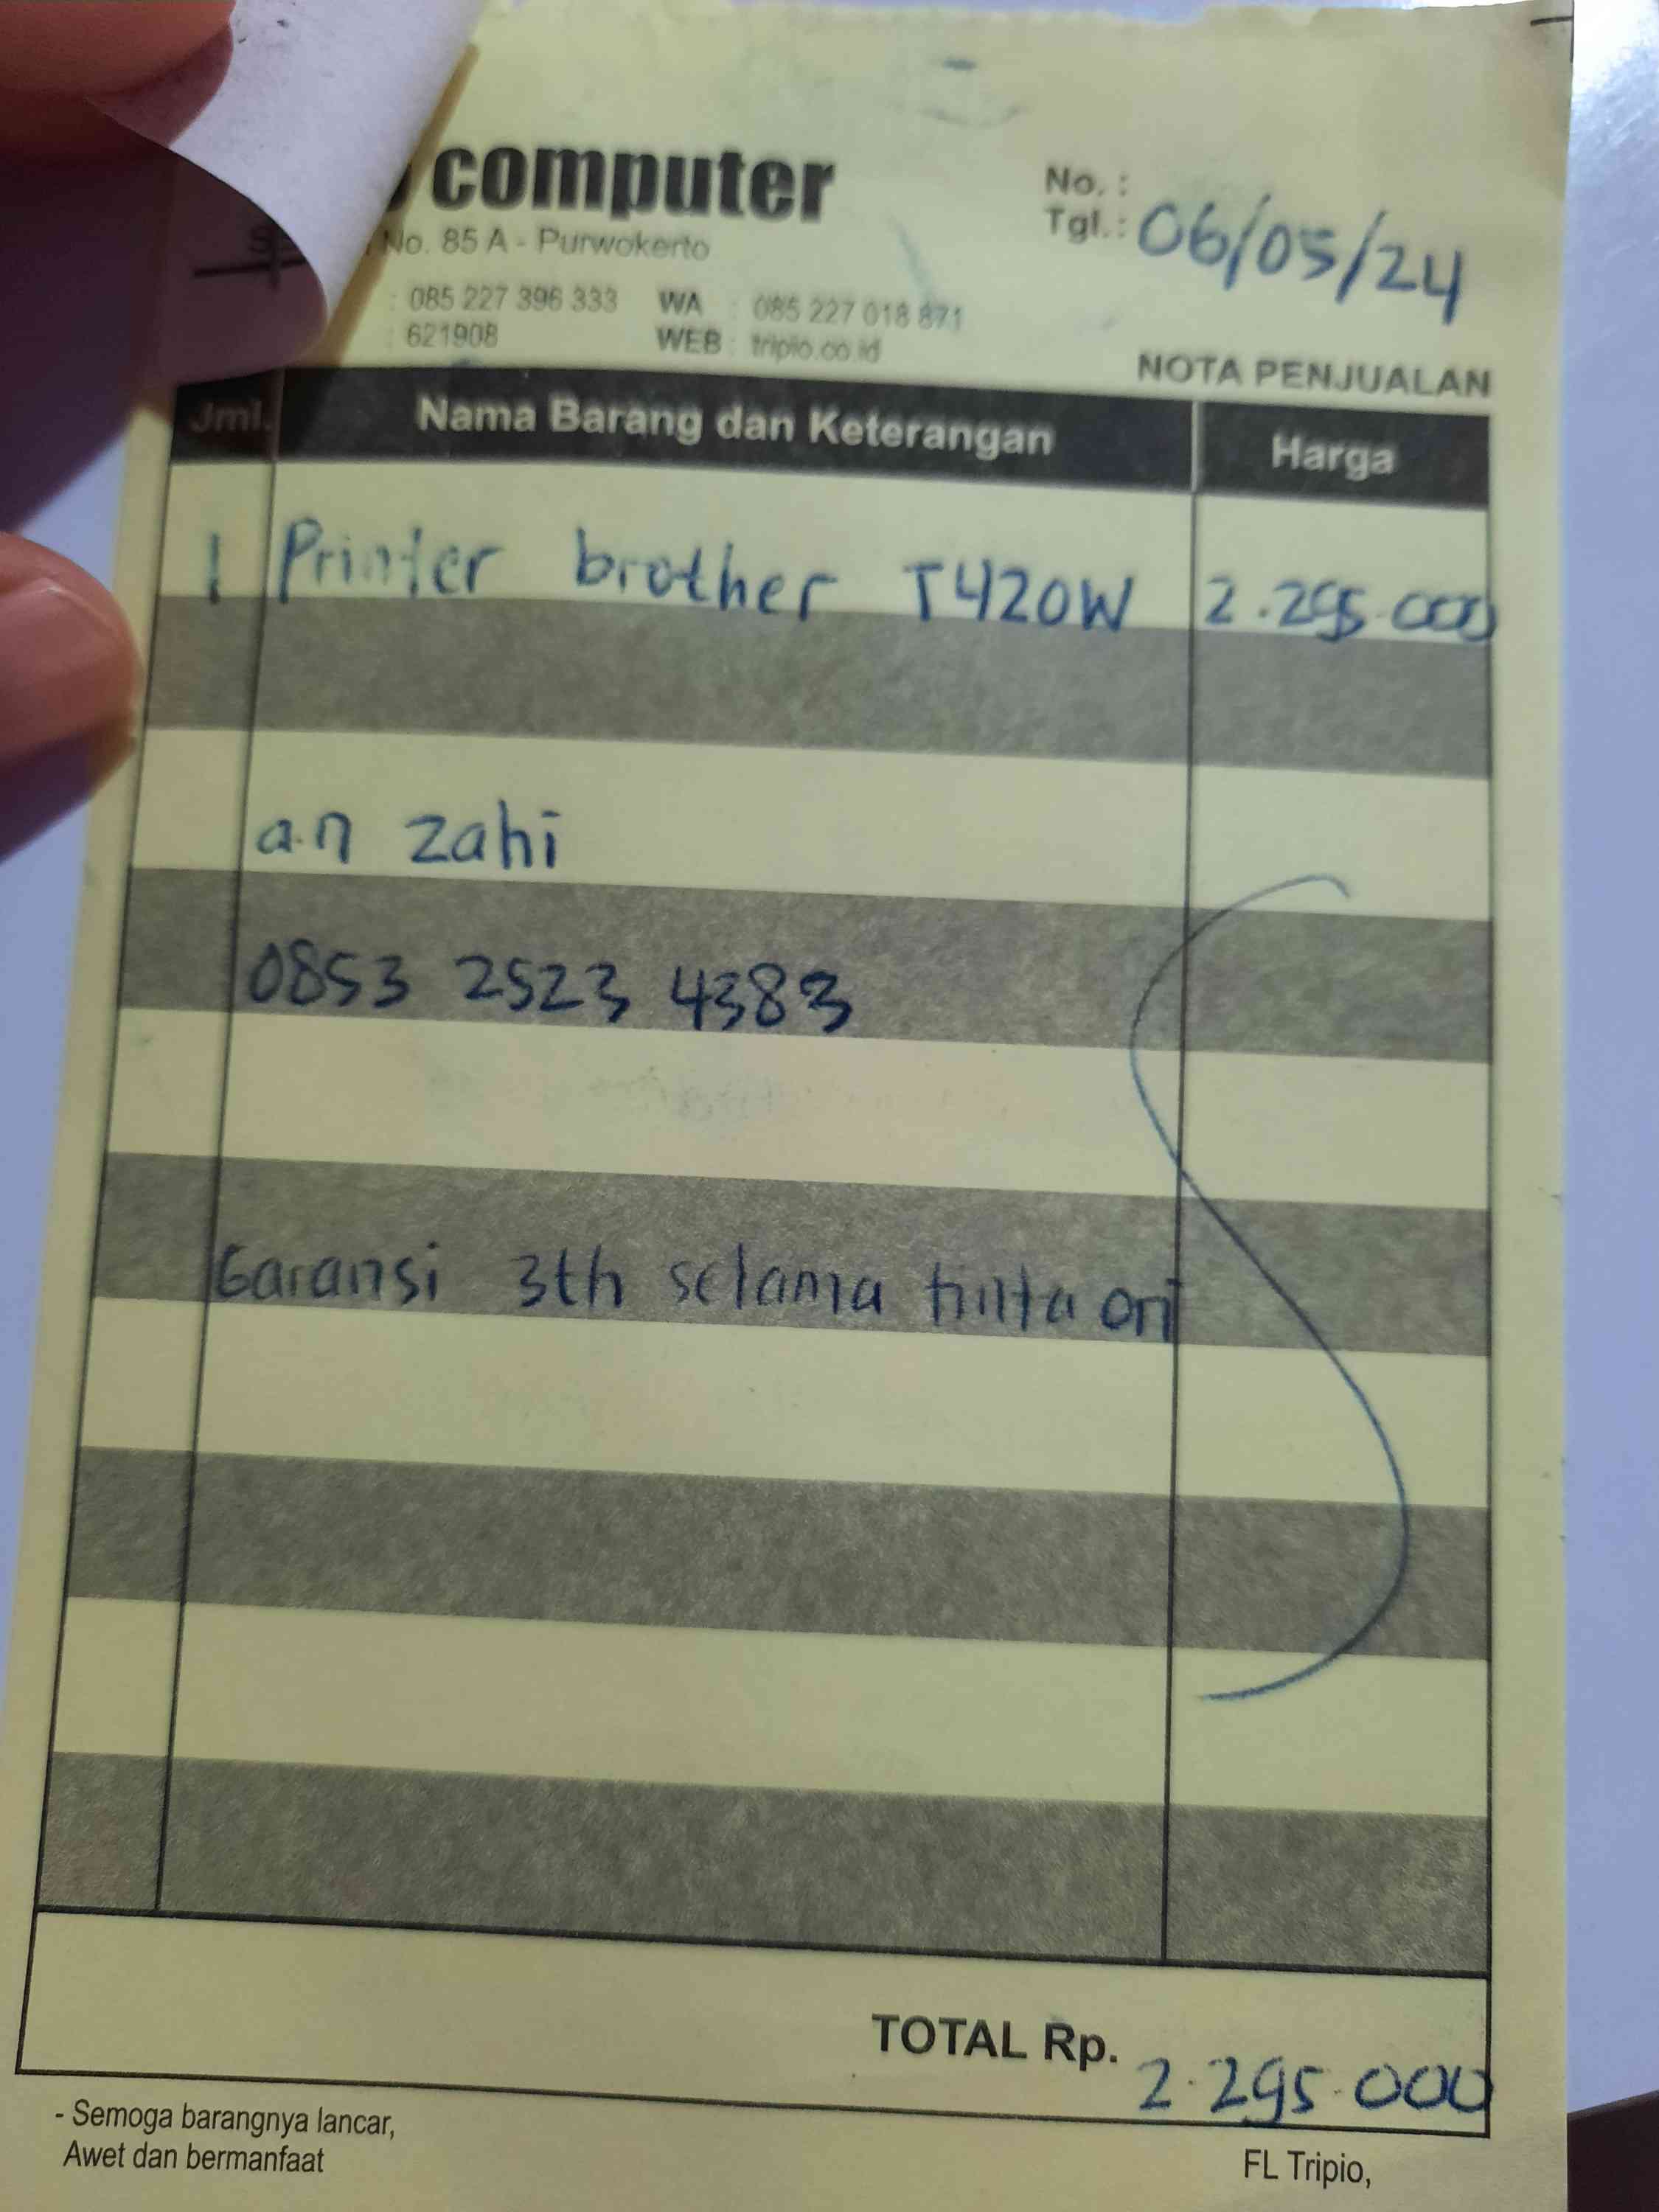 computer
No. 85 A - Purwokerto
: 085 227 396 333 WA : 085 227 018 871
: 621908 WEB : tripio.co.id
No. :
Tgl. : 06/05/24
NOTA PENJUALAN
Jml. Nama Barang dan Keterangan Harga
1 Printer brother T420W 2.295.000
a.n zahi
0853 2523 4383
Garansi 3th selama tinta ori
TOTAL Rp. 2.295.000
- Semoga barangnya lancar,
Awet dan bermanfaat
FL Tripio,